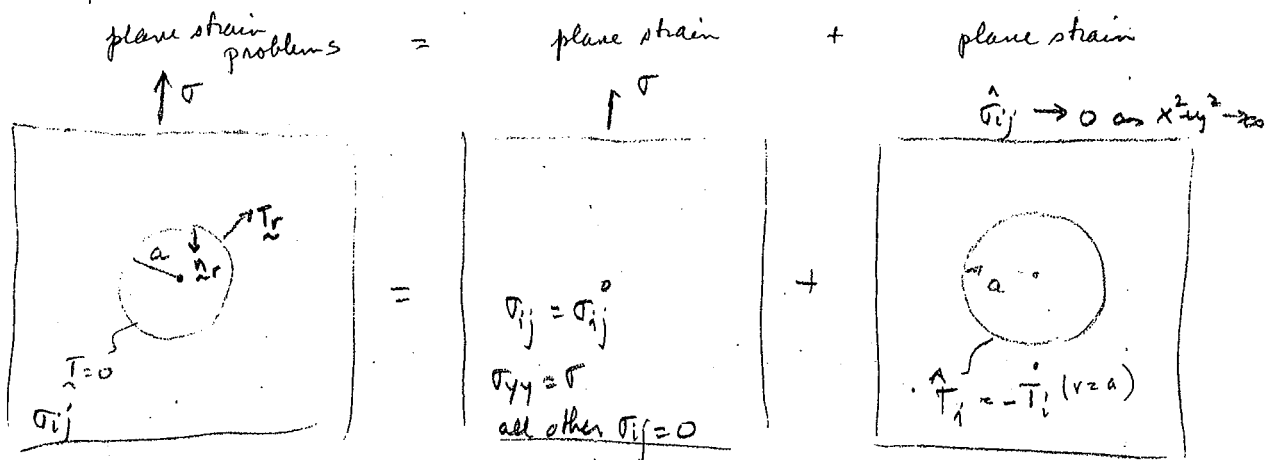 plane strain problems = plane strain + plane strain
↑ σ
↑ σ
σ̂ij → 0 as x²+y² → ∞
a
n
T
=
+
a
T=0
σij
σij = σ°ij
σyy = σ
all other σij = 0
T̂i = -T°i (r=a)